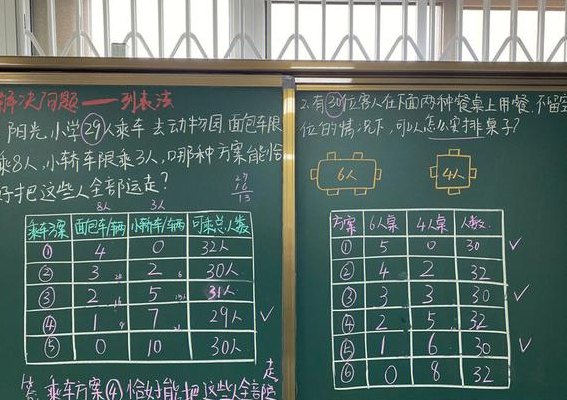 解决问题——列表法
阳光小学29人乘车去动物园,面包车限
乘8人,小轿车限乘3人,哪种方案能恰
好把这些人全部运走?
29
16
13
8人 3人
乘车方案 面包车/辆 小轿车/辆 可乘总人数
① 4 0 32人
② 3 2 30人
③ 2 5 31人
④ 1 7 29人 ✓
⑤ 0 10 30人
答:乘车方案④恰好能把这些人全部运走
2.有30位客人在下面两种餐桌上用餐,不留空
位的情况下,可以怎么安排桌子?
6人 4人
方案 6人桌 4人桌 人数
① 5 0 30 ✓
② 4 2 32
③ 3 3 30 ✓
④ 2 5 32
⑤ 1 6 30 ✓
⑥ 0 8 32